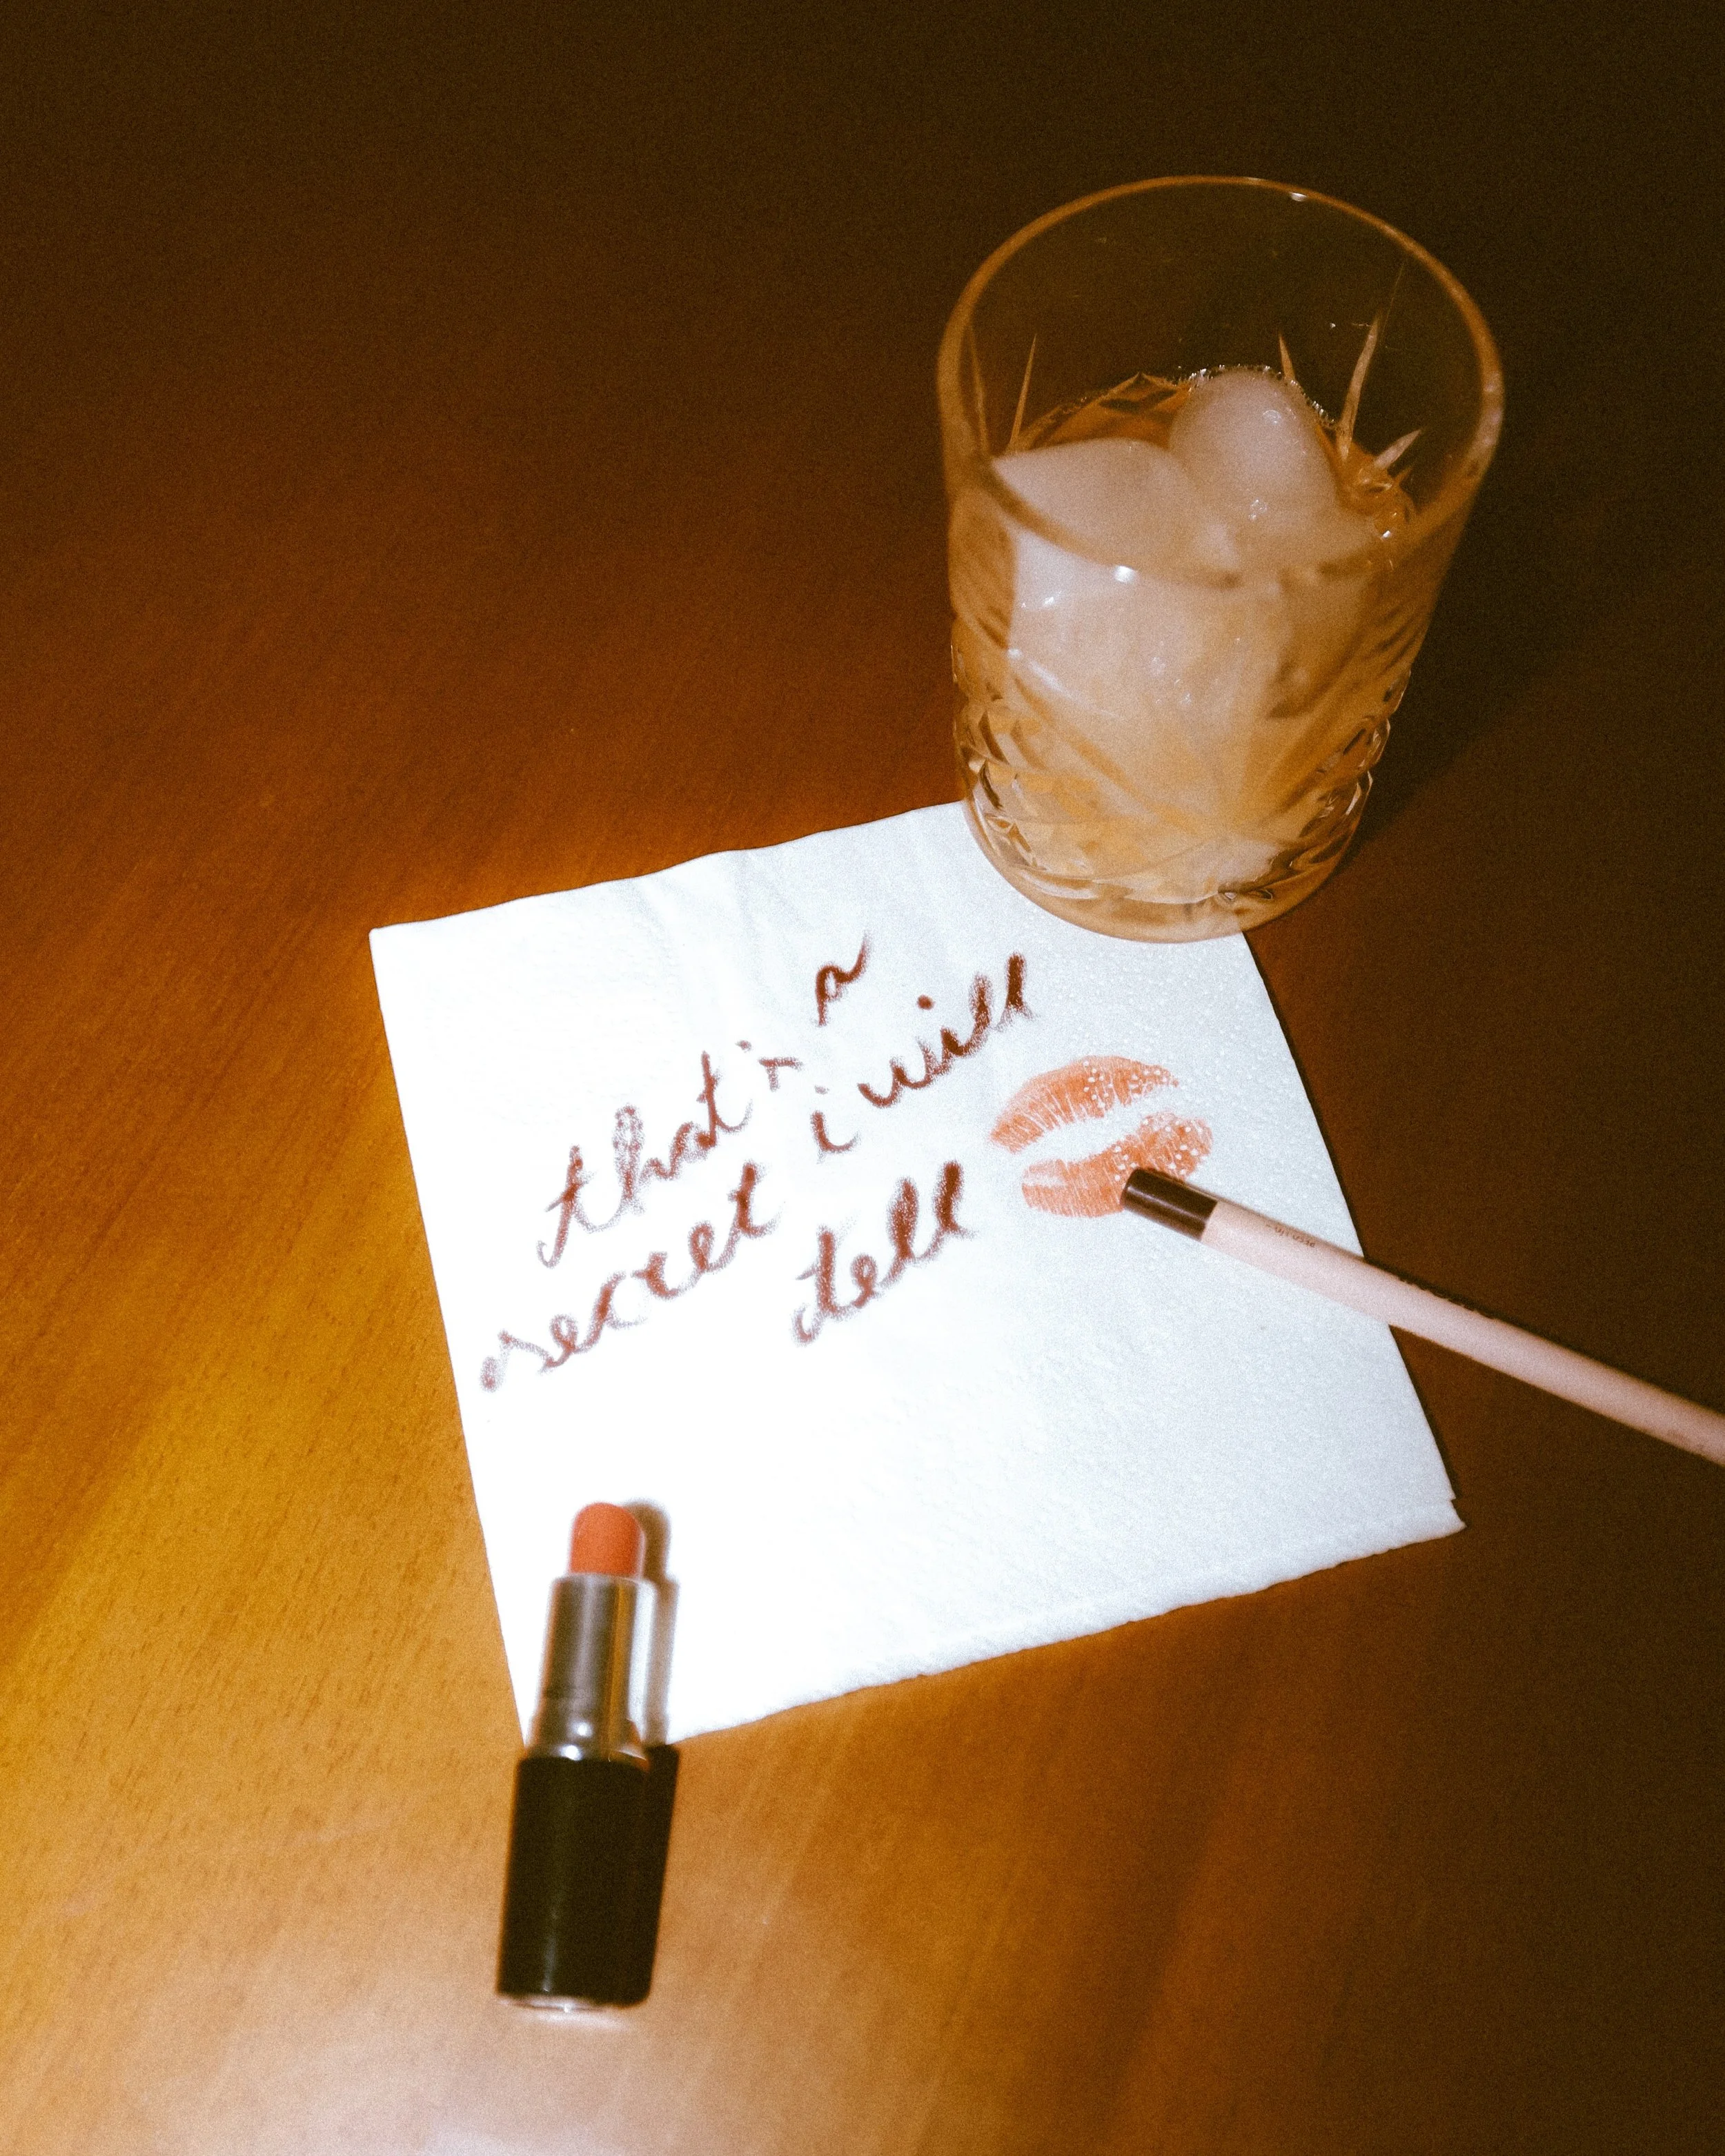 that's a
secret i will
tell